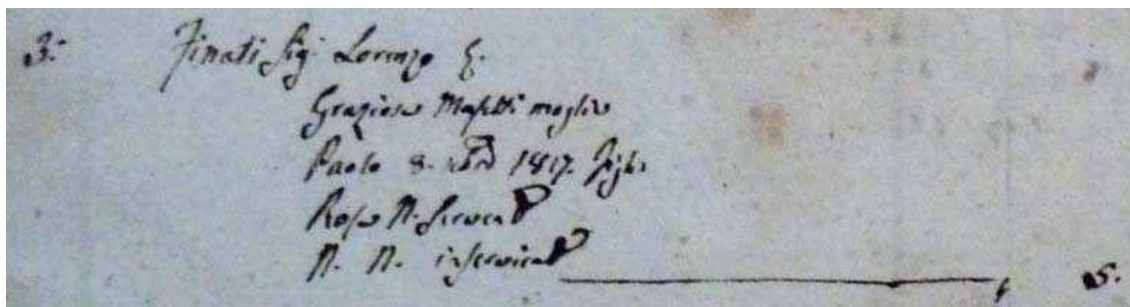 3. Finati Sig. Lorenzo
Graziosa Masetti moglie
Paolo 8. 1817. figlio
Rosa N. Servente
N. N. inserviente 5.